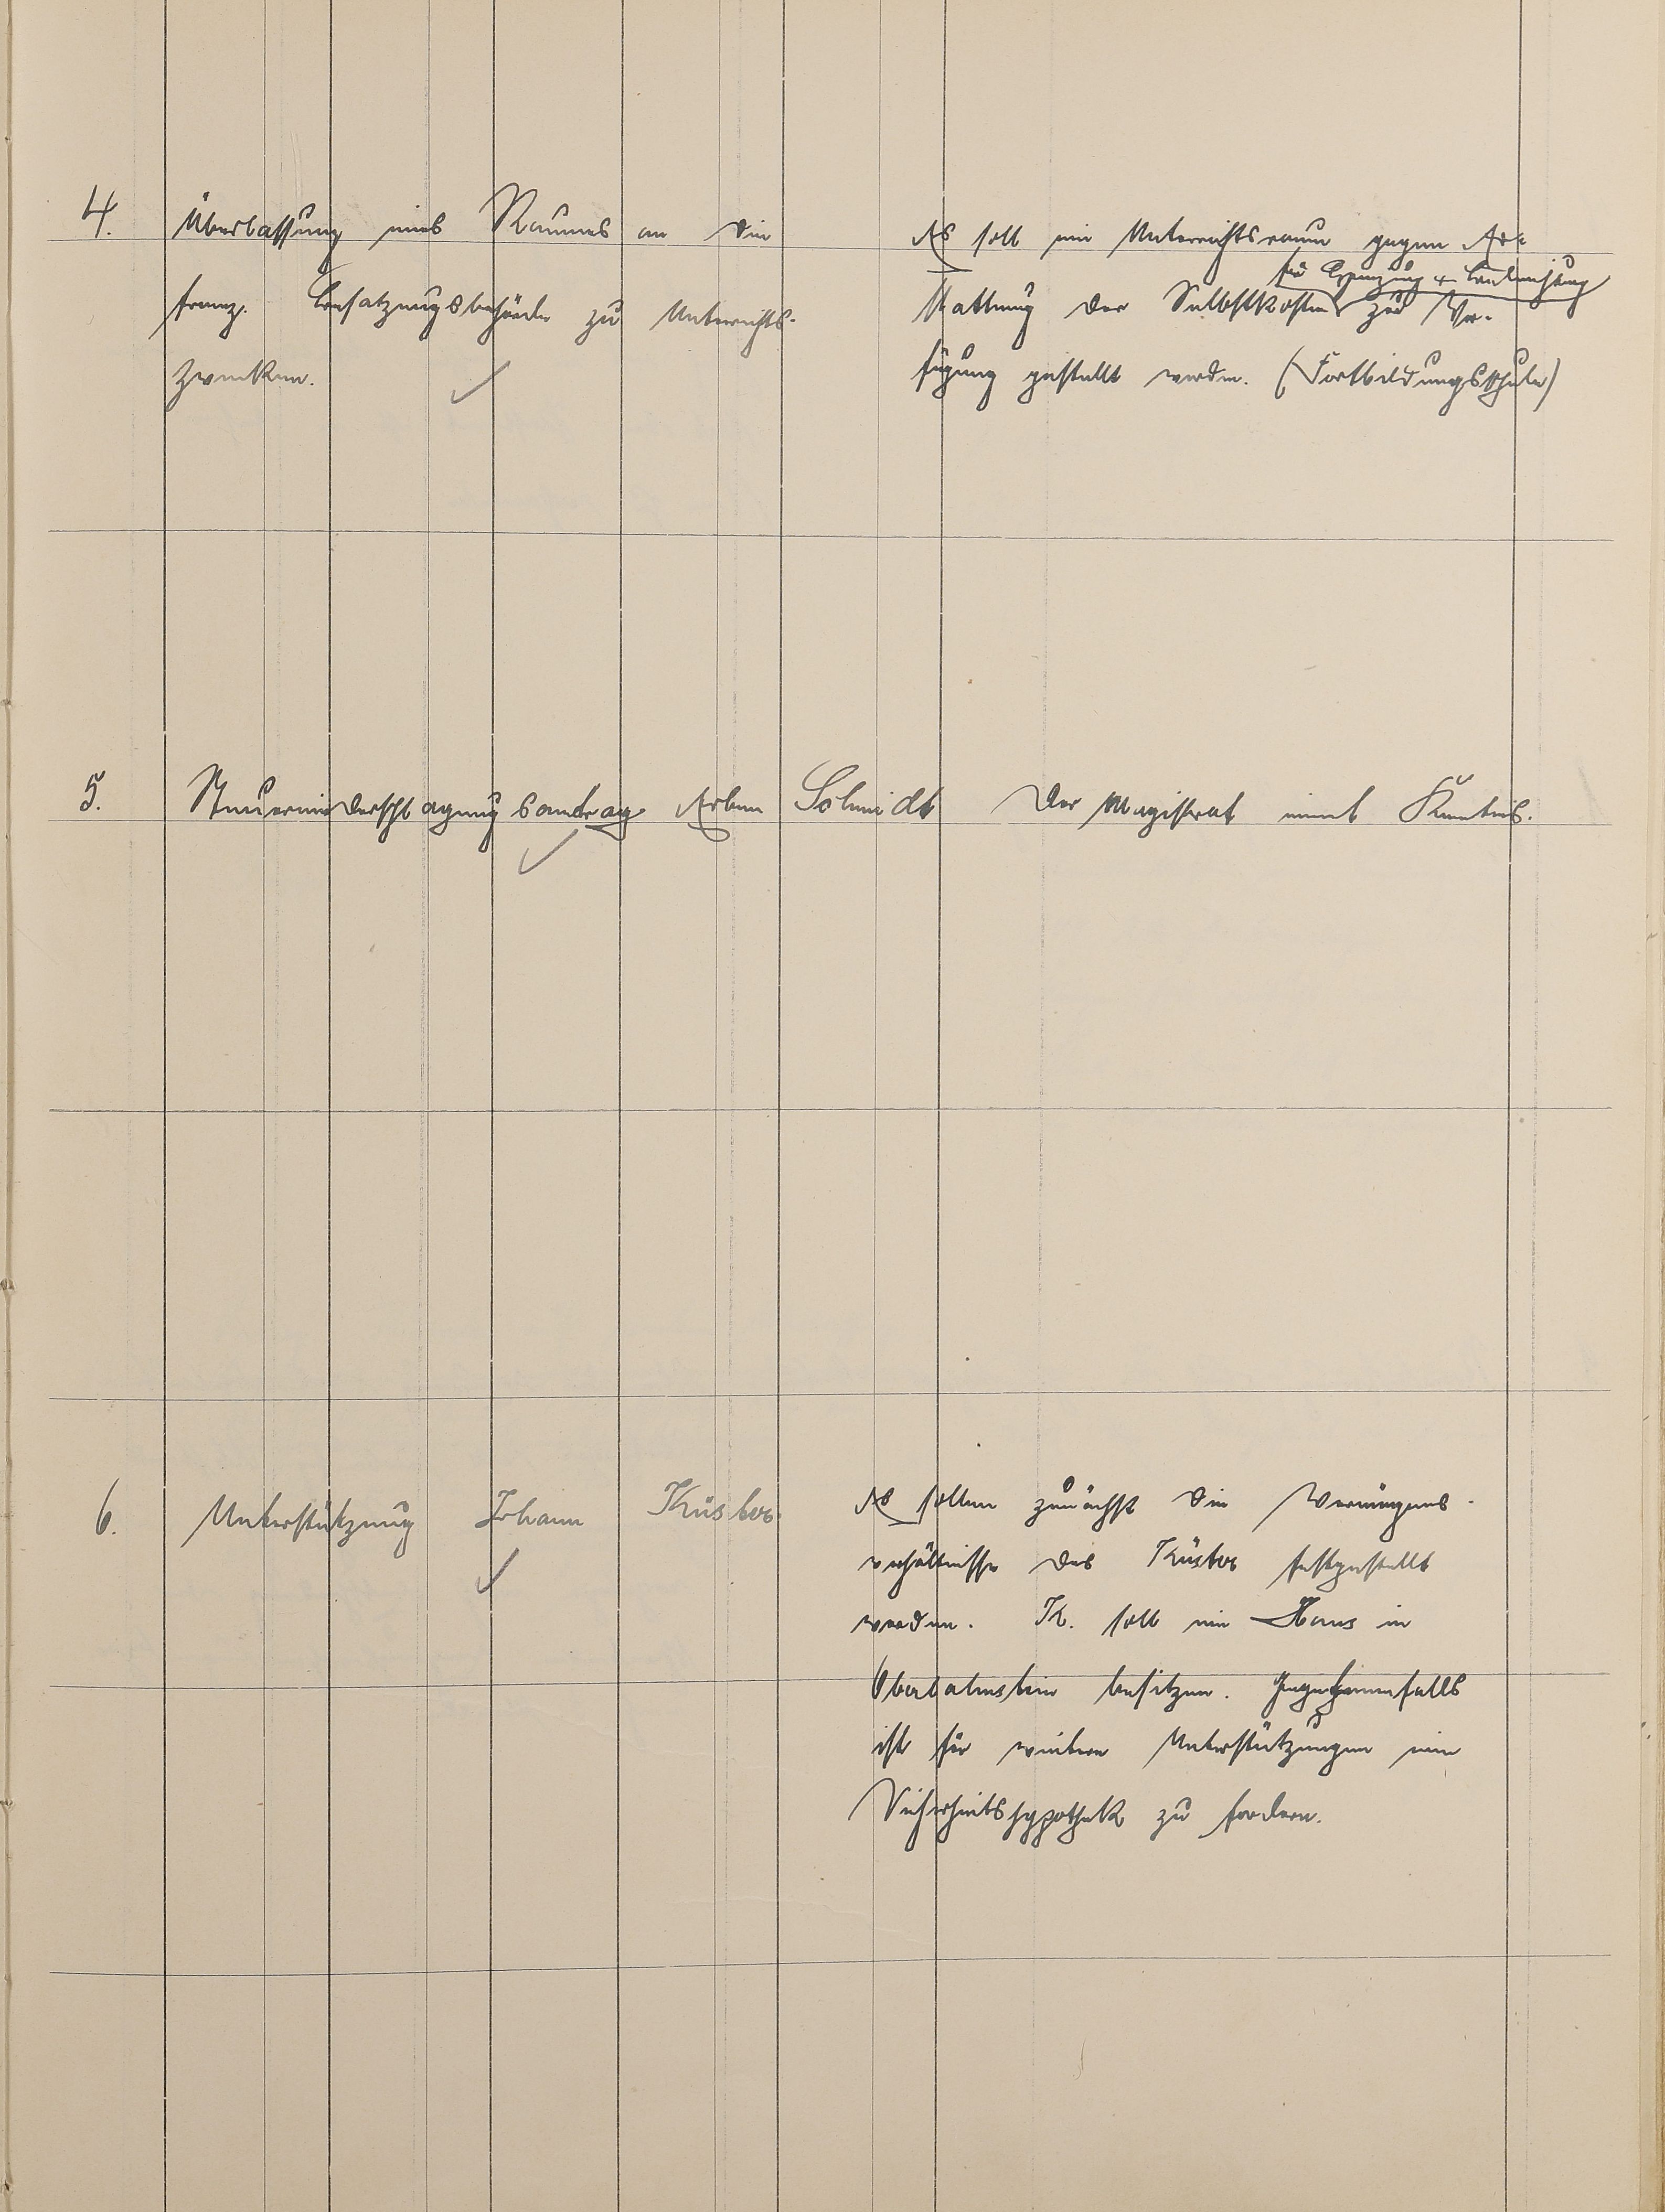 4.
Überlassung eines Raumes an die
franz. Besatzungsbehörde zu Unterrichts-
zwecken.
Es soll ein Unterrichtsraum gegen Er-
für Heizung + Beleuchtung
stattung der Selbstkosten zur Ver-
fügung gestellt werden. (Fortbildungsschule)
5.
Steuerniederschlagungsantrag Erben Schmidt
Der Magistrat nimt Kenntnis.
6.
Unterstützung Johann Küster
Es sollen zunächst die Vermögens-
verhältnisse des Küster festgestellt
werden. K. soll ein Haus in
Oberlahnstein besitzen. Gegebenenfalls
ist für weitere Unterstützungen eine
Sicherheitshypothek zu fordern.